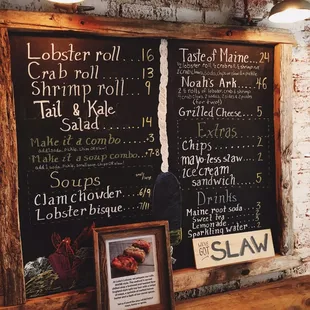 Lobster roll 16
Crab roll 13
Shrimp roll 9
Tail & Kale
Salad 14
Make it a combo 3
Make it a soup combo 7-8
Soups
Clam chowder 6/9
Lobster bisque 7/11
Taste of Maine 24
Noah's Ark 46
Grilled Cheese 5
Extras
Chips 2
mayo-less slaw 2
ice cream
sandwich 5
Drinks
Maine root soda 3
Sweet tea
Lemonade
Sparkling water 2
GOT
SLAW